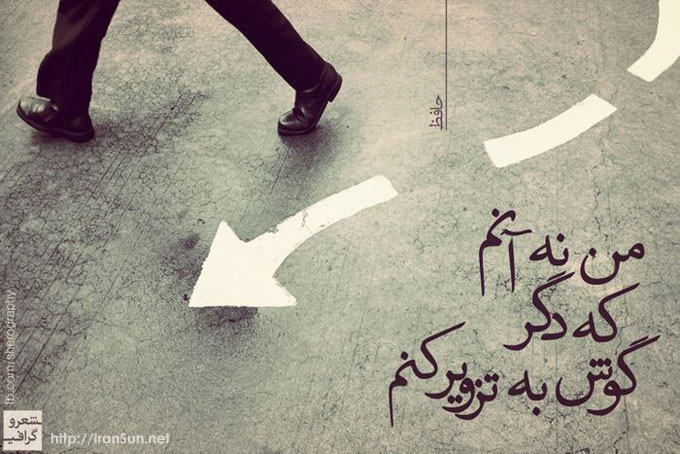 حافظ
من نه آنم
که دگر
گوش به تزویر کنم
fb.com/sherography
شعرو
گرافی
http://IranSun.net